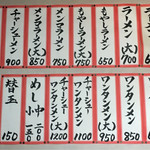 ラーメン(大) 700
もやしラーメン
もやしラーメン(大) 750
メンマラーメン 750
メンマラーメン(大) 850
チャーシューメン 900
ワンタンメン
ワンタンメン(大) 950
チャーシューワンタンメン 1100
チャーシューワンタンメン(大) 1200
めし 中 小
替玉 150